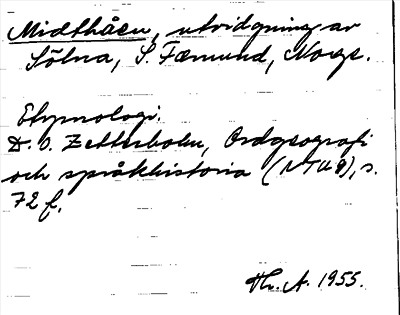 Midthåen, utvidgning av
Sölna, S. Fæmund, Norge.
Etymologi.
D. O. Zetterholm, Ordgeografi
och språkhistoria (NTU 9), s.
72 f.
Hr. A. 1955.